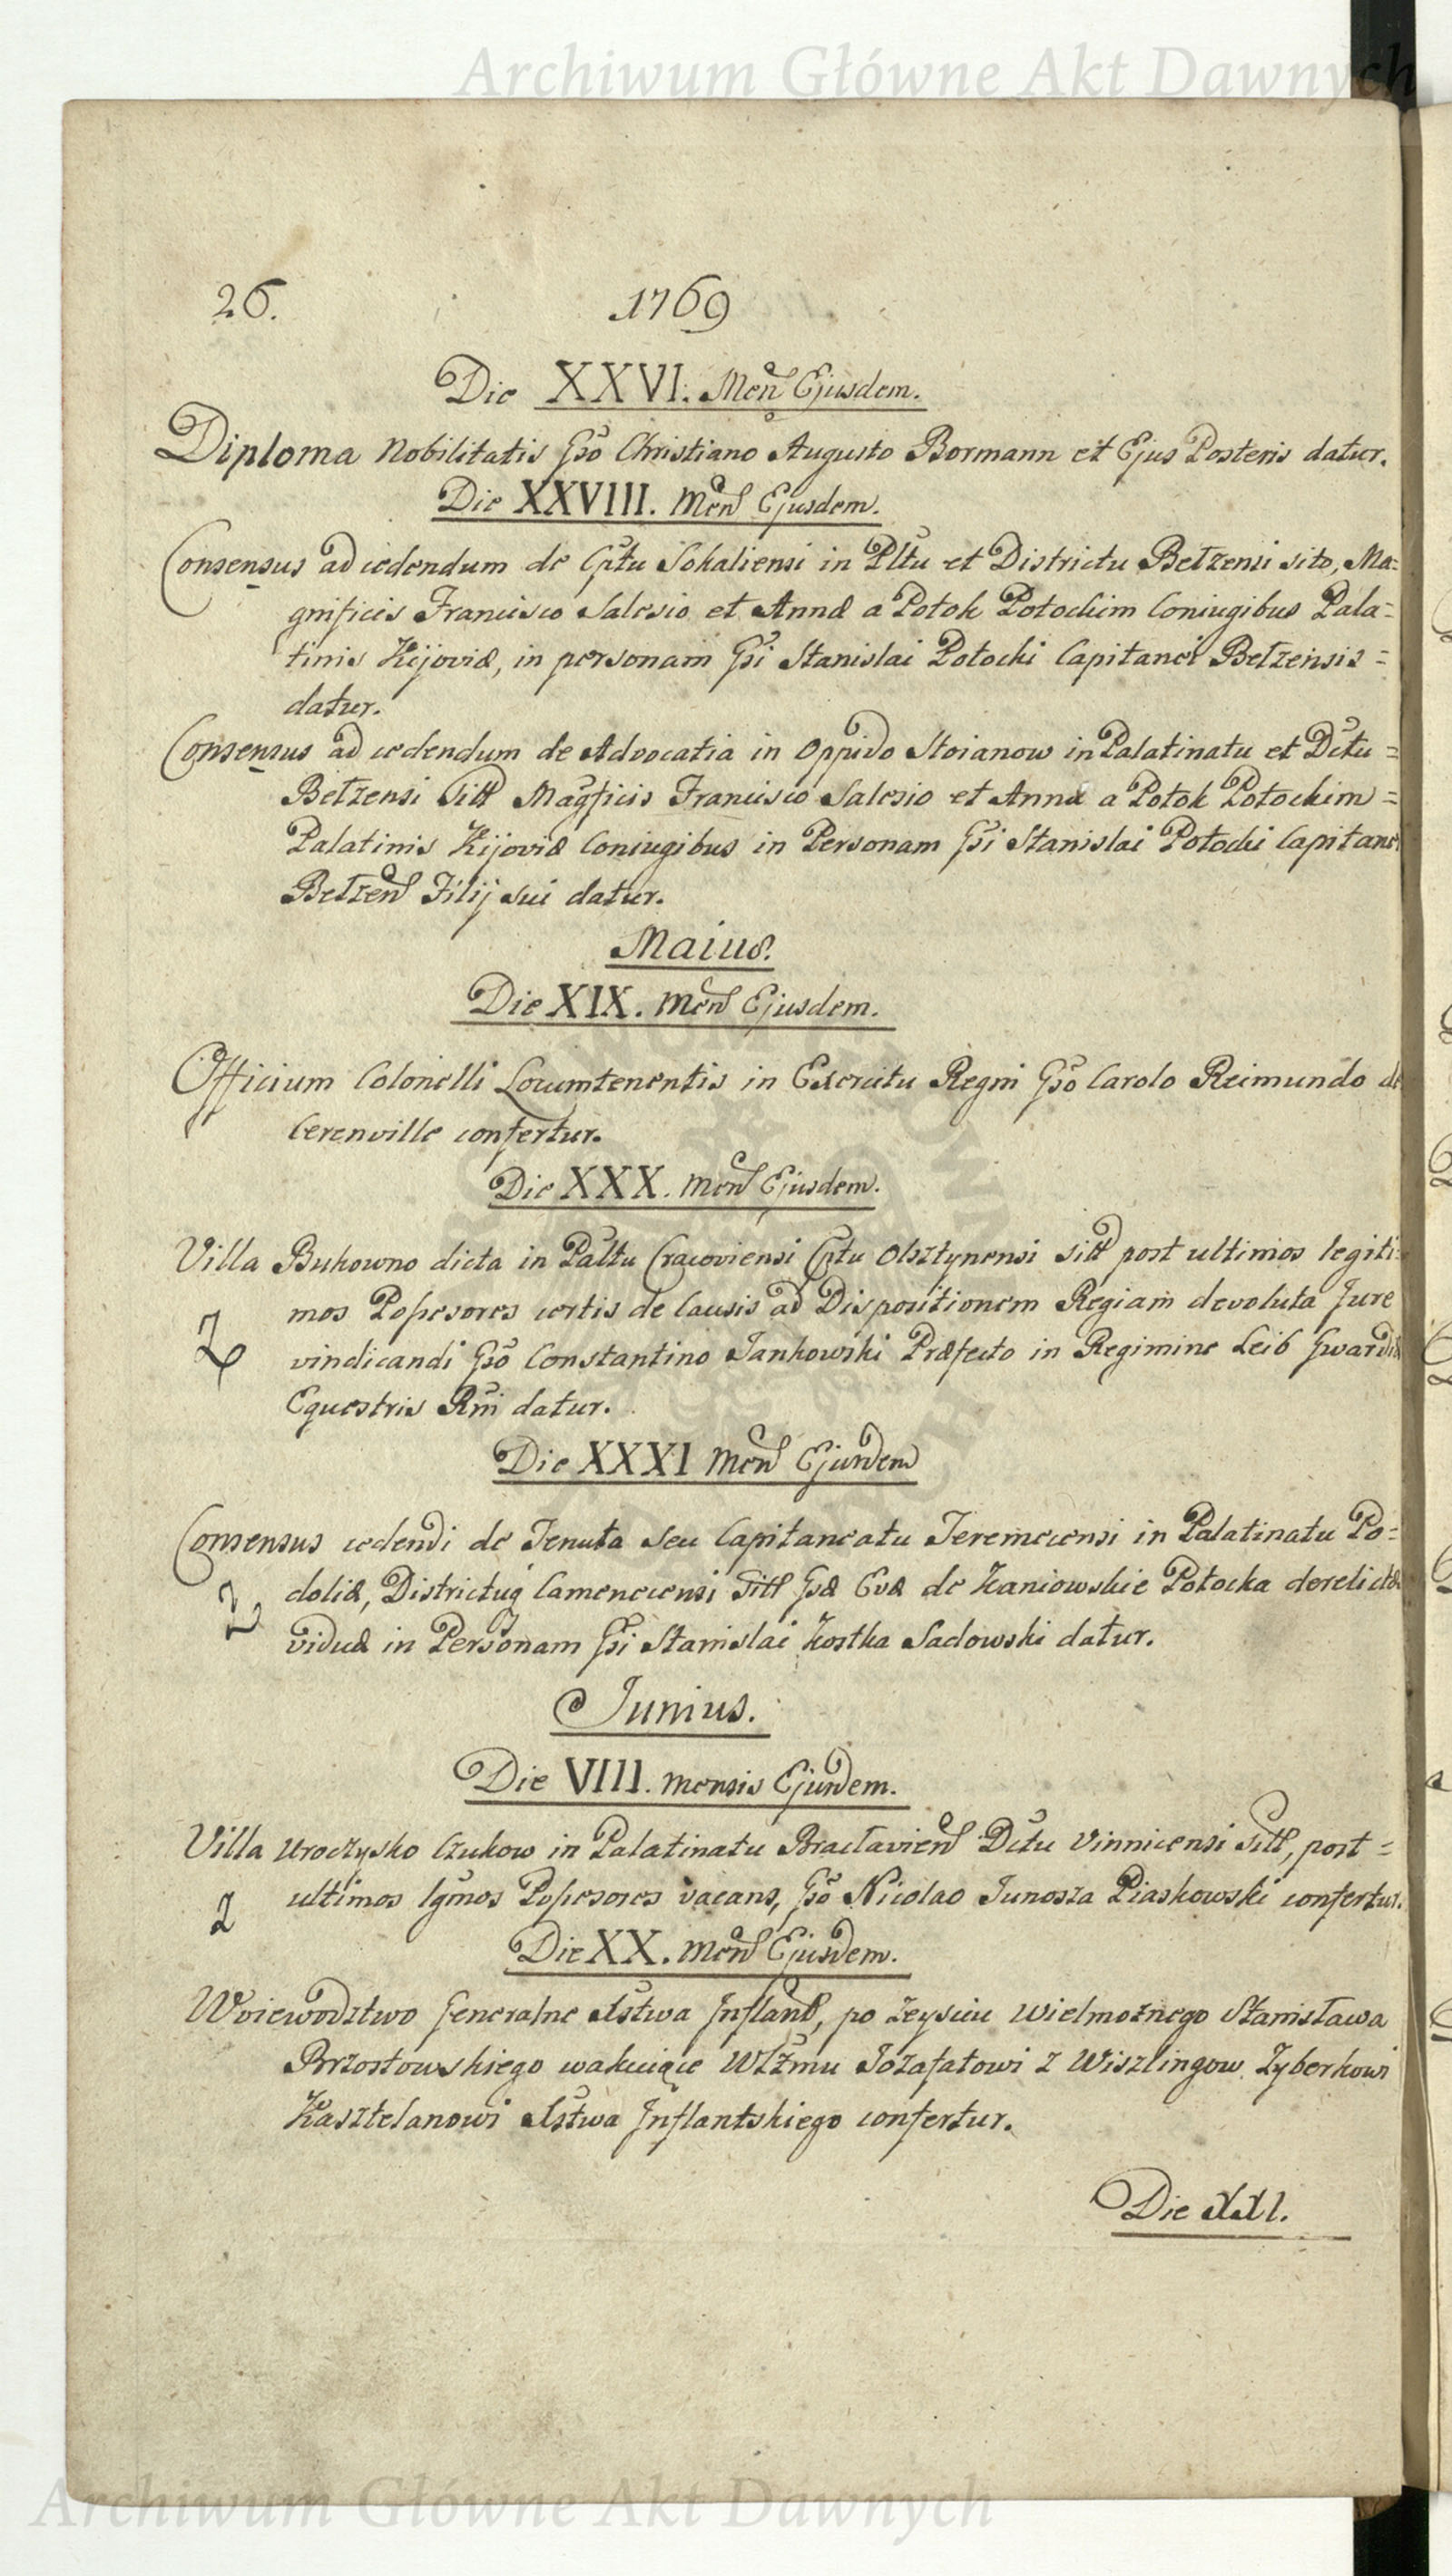 Archiwum Główne Akt Dawnych
26. 1769
Die XXVI. Men Ejusdem.
Diploma Nobilitatis Gso Christiano Augusto Bormann et Ejus Posteris datur.
Die XXVIII. Men Ejusdem.
Consensus ad cedendum de Cptu Sokaliensi in Pltu et Districtu Bełzensi sito, Ma=
gnificis Francisco Salesio et Annæ a Potok Potockim Coniugibus Pala=
tinis Kijoviæ, in personam Gsi Stanislai Potocki Capitanei Bełzensis=
datur.
Consensus ad cedendum de Advocatia in Oppido Stoianow in Palatinatu et Dctu=
Bełzensi Sitt Magficis Francisco Salesio et Annæ a Potok Potockim=
Palatinis Kijoviæ Coniugibus in Personam Gsi Stanislai Potocki Capitanei
Bełzen Filij sui datur.
Maius.
Die XIX. Men Ejusdem.
Officium Colonelli Locumtenentis in Exercitu Regni Gso Carolo Reimundo de
Cerenville confertur.
Die XXX. Men Ejusdem.
Villa Bukowno dicta in Paltu Cracoviensi Cptu Olsztynensi sitt post ultimos legiti=
mos Possesores certis de Causis ad Dispositionem Regiam devoluta Jure
vindicandi Gso Constantino Jankowski Præfecto in Regimine Leib Gwardiæ
Equestris Rni datur.
Die XXXI Men Ejusdem
Consensus cedendi de Tenuta seu Capitaneatu Jeremecensi in Palatinatu Po=
doliæ, Districtuq Camenecensi Sitt Gsæ Evæ de Kaniowskie Potocka derelictæ
viduæ in Personam Gsi Stanislai Kostka Sadowski datur.
Junius.
Die VIII. mensis Ejusdem.
Villa Uroczysko Czukow in Palatinatu Bracłavien Dctu Vinnicensi sitt, post=
2 ultimos lgmos Possesores vacans, Gso Nicolao Junosza Piaskowski confertur.
Die XX. Men Ejusdem.
Woiewodztwo Generalne Xstwa Inflant, po zeysciu Wielmożnego Stanisława
Brzostowskiego wakuiące Wlżmu Jozafatowi z Wiszlingow Zyberkowi
Kasztelanowi Xstwa Inflantskiego confertur.
Die XXI.
Archiwum Główne Akt Dawnych